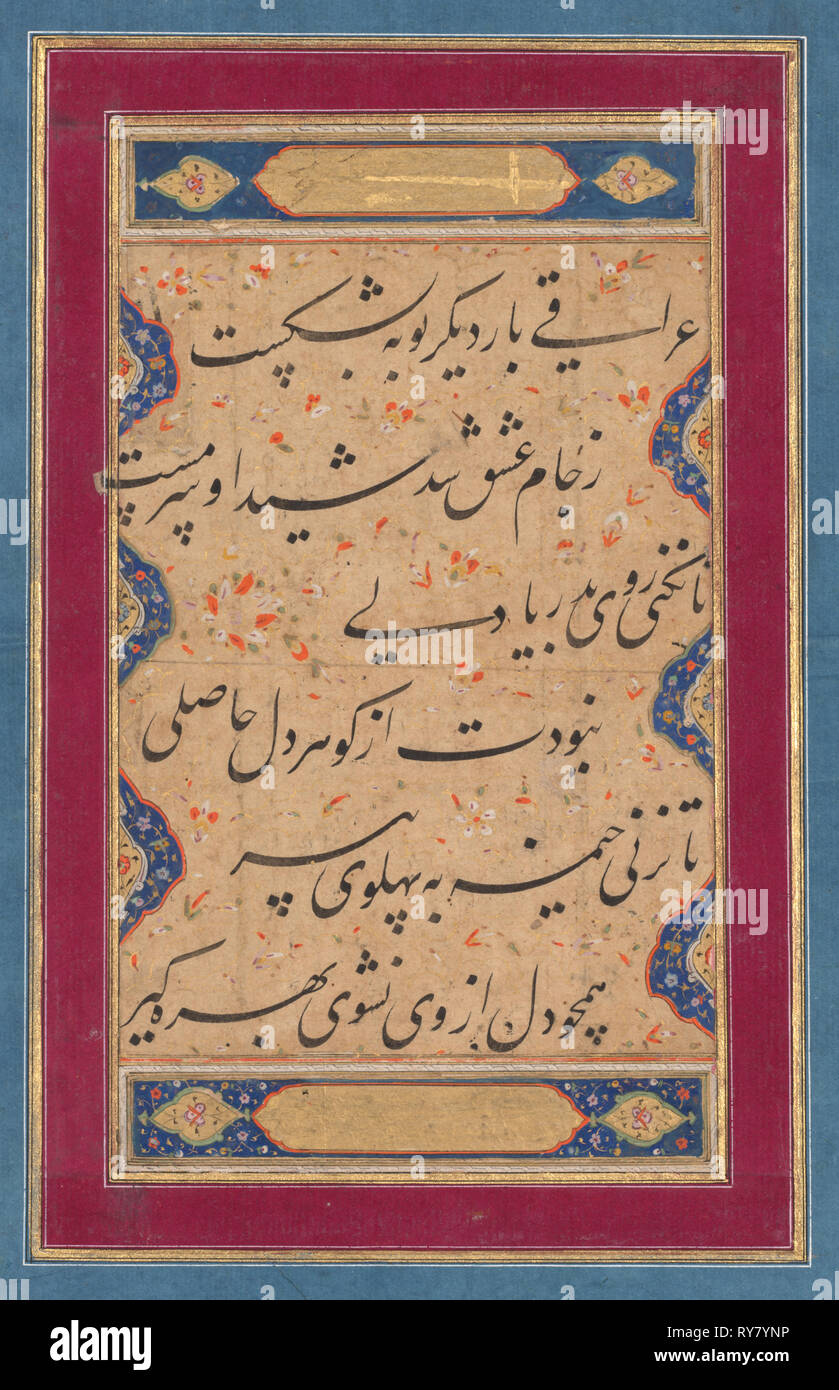 عراقی بار دیگر توبه بشکست
ز جام عشق شد شیدا و سرمست
تا نکنی روی بدریا دلی
نبودت از گوهر دل حاصلی
تا نزنی خیمه به پهلوی پیر
همچو دل از وی نشوی بهره گیر
alamy
Image ID: RY7YNP
www.alamy.com